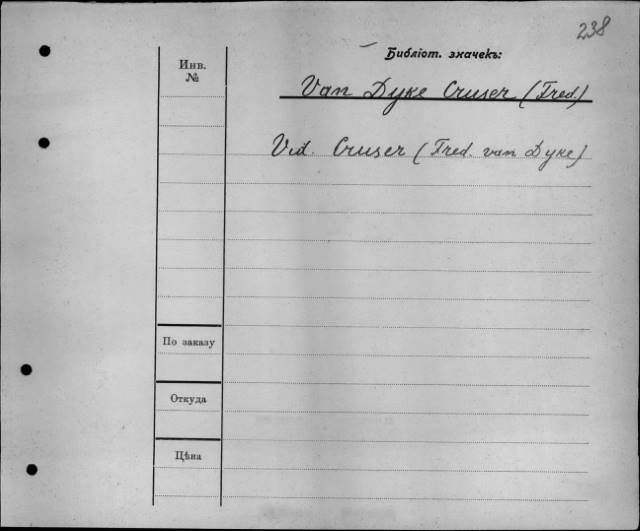 238
Библіот. значекъ:
Инв.
№
Van Dyke Cruser (Fred)
Vid. Cruser (Fred. van Dyke)
По заказу
Откуда
Цѣна